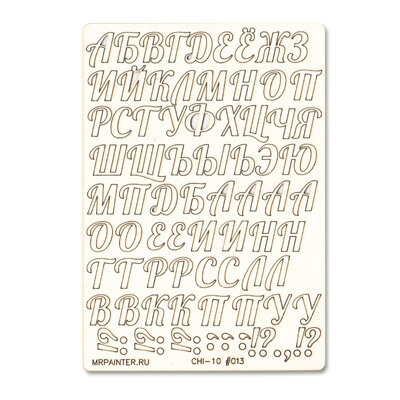 АБВГДЕЁЖЗ
ИЙКЛМНОП
РСТУФХЦЧЯ
ШЩЪЫЬЭЮ
МПДБАААА
ООЕЕИИНН
ГТРРССЛЛ
ВВККПТТУУ
!?!?!?,.!?
MRPAINTER.RU CHI-10 #013